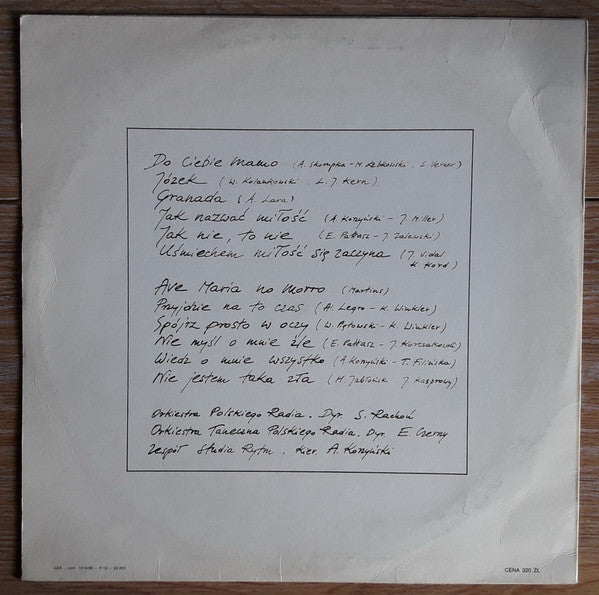 Do Ciebie Mamo (A. Skorupka - M. Łebkowski, S. Werner)
Józek (W. Kolankowski, L. J. Kern)
Granada (A. Lara)
Jak nazwać miłość (A. Korzyński - J. Miller)
Jak nie, to nie (E. Pałłasz - J. Zalewski)
Uśmiechem miłość się zaczyna (J. Vidal
K. Kord)
Ave Maria no Morro (Martins)
Przyjdzie na to czas (Al. Legro - K. Winkler)
Spójrz prosto w oczy (W. Piętowski - K. Winkler)
Nie myśl o mnie źle (E. Pałłasz - J. Korczakowski)
Wiedz o mnie wszystko (A. Korzyński - T. Filińska)
Nie jestem taka zła (H. Jabłoński - J. Kasprowy)
Orkiestra Polskiego Radia. Dyr. S. Rachoń
Orkiestra Taneczna Polskiego Radia. Dyr. E. Czerny
Zespół Studia Rytm. Kier. A. Korzyński
CENA 320 ZŁ